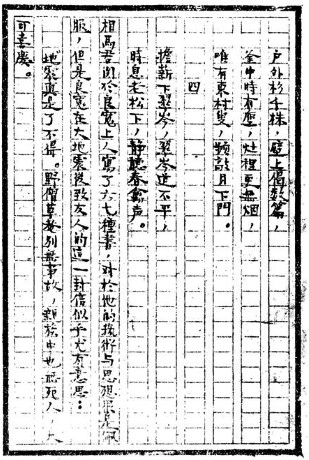 户外杉千株，壁上偈数篇，
釜中時有塵，灶裡更無烟，
唯有東村叟，頻敲月下門。
四
擔薪下翠岑，翠岑道不平，
時息老松下，靜聽春禽声。
相馬君関於良寬上人寫了六七種書，对於他的藝術与思想很是佩
服，但是良寬在大地震後致友人的這一封信似乎尤有意思：
地震真是了不得。野僧草菴別無事故，親族中也無死人，大
可喜慶。